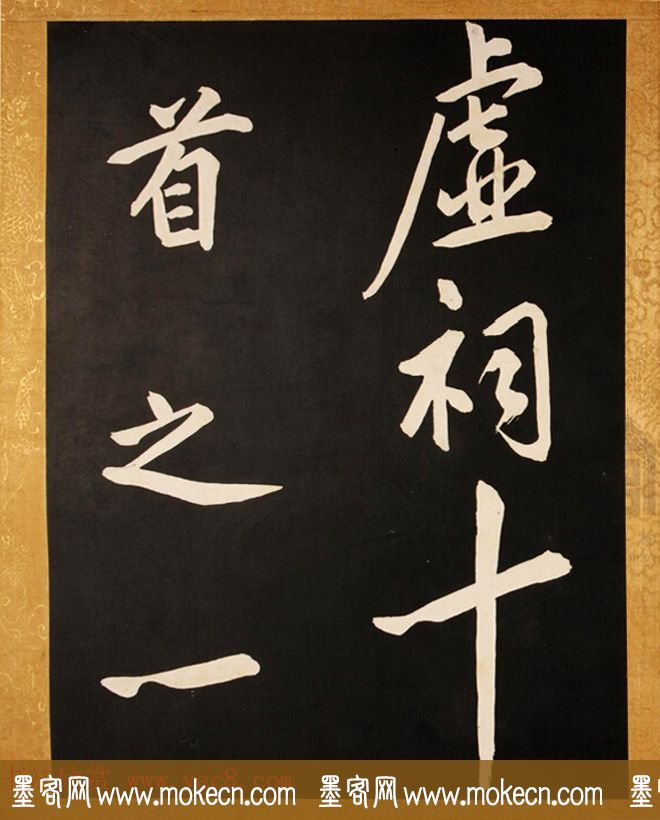 虚祠十
首之一
www.yac8.com
墨客网 www.mokecn.com 墨客网 www.mokecn.com